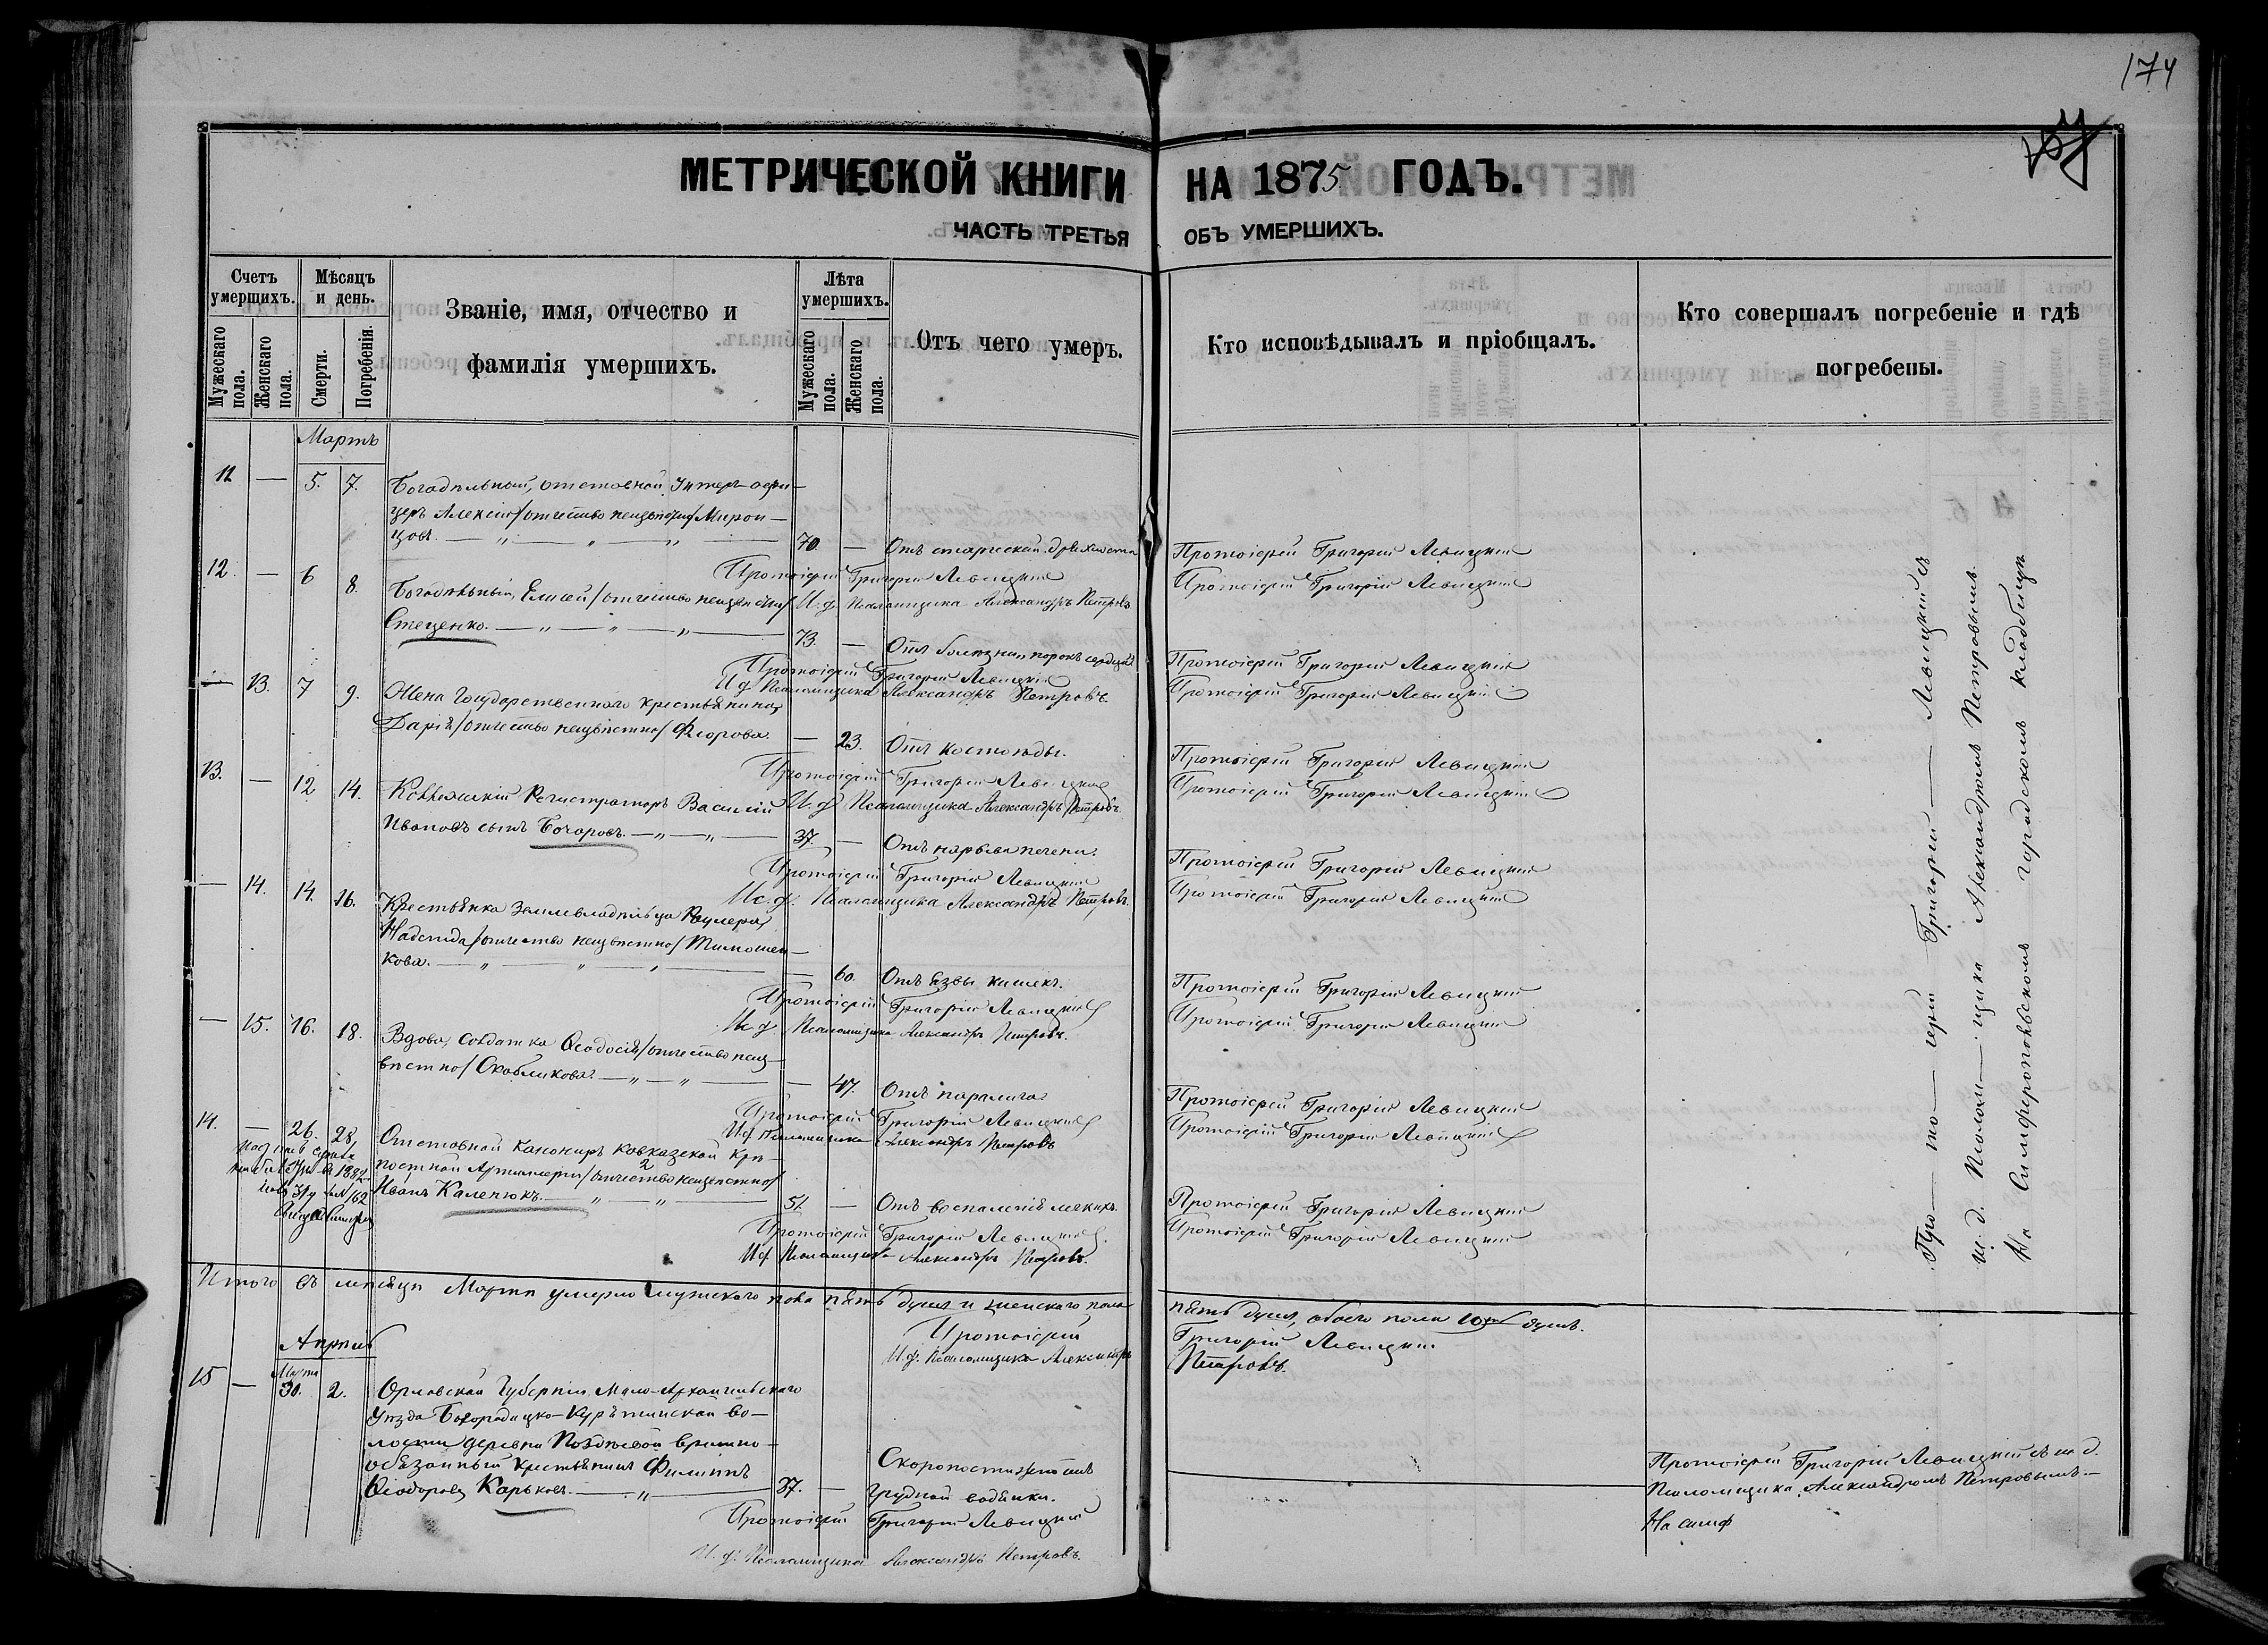 174
МЕТРИЧЕСКОЙ КНИГИ НА 1875 ГОДЪ.
ЧАСТЬ ТРЕТЬЯ ОБЪ УМЕРШИХЪ.
Счетъ умершихъ.
Мужескаго пола.
Женскаго пола.
Мѣсяцъ и день.
Смерти.
Погребенія.
Званіе, имя, отчество и
фамилія умершихъ.
Лѣта умершихъ.
Мужескаго пола.
Женскаго пола.
Отъ чего умеръ.
Кто исповѣдывалъ и пріобщалъ.
Кто совершалъ погребеніе и гдѣ
погребены.
Мартъ
11 — 5. 7. Богадѣльный, отставной Унтеръ-офи-
церъ Алексій /отчество неизвѣстно/ Мирон-
цовъ. 70. — Отъ старческой дряхлости Протоіерей Григорій Левицкій
Протоіерей Григорій Левицкій Протоіерей Григорій Левицкій
12. — 6 8. Богадѣльный, Елисей /отчество неизвѣстно/ И. д. Псаломщика Александръ Петровъ
Стеценко. 73. — Отъ болезни порокъ сердца Протоіерей Григорій Левицкій
Протоіерей Григорій Левицкій Протоіерей Григорій Левицкій
И. д. Псаломщика Александръ Петровъ.
— 13. 7 9. Жена Государственного крестьянина,
Дарія /отчество неизвѣстно/ Фіорова. — 23. Отъ костоѣды. Протоіерей Григорій Левицкій
Протоіерей Григорій Левицкій Протоіерей Григорій Левицкій
13. — 12 14. Коллежскій Регистраторъ Василій И. д. Псаломщика Александръ Петровъ.
Ивановъ сынъ Бочаровъ. 37. — Отъ нарыва печени. Протоіерей Григорій Левицкій
Протоіерей Григорій Левицкій Протоіерей Григорій Левицкій
И. д. Псаломщика Александръ Петровъ.
— 14. 14. 16. Крестьянка Землевладѣльца
Надежда /отчество неизвѣстно/ Тимошен-
кова. — 60. Отъ язвы кишекъ. Протоіерей Григорій Левицкій
Протоіерей Григорій Левицкій Протоіерей Григорій Левицкій
И. д. Псаломщика Александръ Петровъ.
— 15. 16. 18. Вдова, Солдатка Ѳеодосія /отчество неиз-
вѣстно/ Скобликова. — 47. Отъ паралича Протоіерей Григорій Левицкій
Протоіерей Григорій Левицкій Протоіерей Григорій Левицкій
И. д. Псаломщика Александръ Петровъ
14. — 26. 28. Отставной Канониръ Кавказской Крѣ-
постной Артиллеріи /отчество неизвѣстно/
Иванъ Каленюкъ. 51. — Отъ воспаленія легкихъ. Протоіерей Григорій Левицкій
Протоіерей Григорій Левицкій. Протоіерей Григорій Левицкій
И. д. Псаломщика Александръ Петровъ.
Про-то-іерей Григорій — Левицкій съ
и. д. Псалом-щика Александромъ Петровымъ.
На Симферопольскомъ городскомъ кладбищѣ
Итого въ мѣсяцѣ Мартѣ умерло мужскаго пола пять душъ и женскаго пола пять душъ, обоего пола душъ.
Протоіерей Григорій Левицкій
И. д. Псаломщика Александръ Петровъ.
Апрѣль
Марта
15 — 30. 2. Орловской Губерніи, Мало-Архангельскаго
Уѣзда Богородицко- во-
лости деревни временно-
обязанный крестьянинъ Филиппъ Скоропостижно отъ
Ѳеодоровъ Карьковъ. 37. — грудной водянки.
Протоіерей Григорій Левицкій
И. д. Псаломщика Александръ Петровъ.
Протоіерей Григорій Левицкій съ и. д.
Псаломщика Александромъ Петровымъ —
На симф